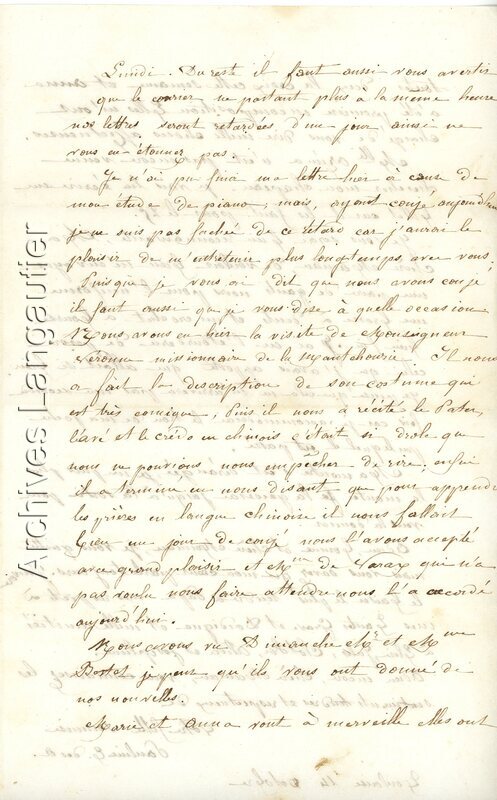 Lundi. Du reste il faut aussi vous avertir
que le courrier ne partant plus à la même heure
nos lettres seront retardées d'un jour ainsi ne
vous en étonnez pas.
Je n'ai pu finir ma lettre hier à cause de
mon étude de piano, mais, ayant congé aujourd'hui
je ne suis pas fachée de ce retard car j'aurai le
plaisir de m'entretenir plus longtemps avec vous.
Puisque je vous ai dit que nous avons congé
il faut aussi que je vous dise à quelle occasion
Nous avons eu hier la visite de Monseigneur
missionnaire de la Mantchourie. Il nous
a fait la description de son costume qui
est très comique, Puis il nous a récité le Pater,
l'avé et le crédo en chinois c'était si drole que
nous ne pouvions nous empêcher de rire; enfin
il a terminé en nous disant que pour apprendre
les prières en langue chinoise il nous fallait
bien un jour de congé nous l'avons accepté
avec grand plaisir et Mme de qui n'a
pas voulu nous faire attendre nous l'a accordé
aujourd'hui.
Nous avons vu Dimanche Mr et Mme
je pense qu'ils vous ont donné de
nos nouvelles.
Marie et anna vont à merveille elles ont
Archives Langautier